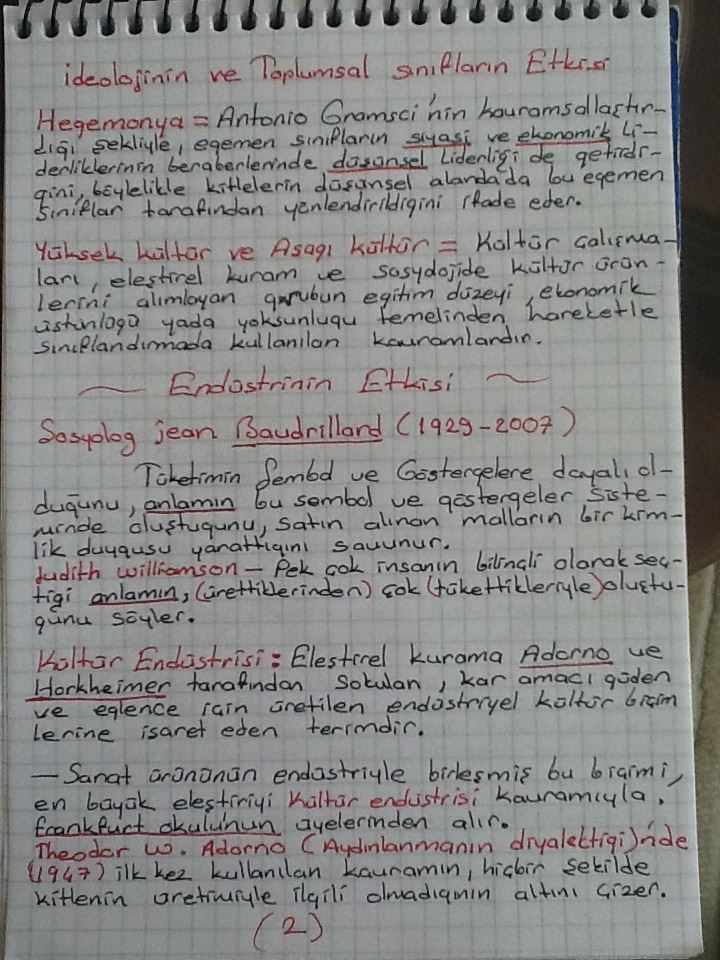 ideolojinin ve Toplumsal sınıfların Etkisi
Hegemonya = Antonio Gramsci'nin kavramsallaştır-
dığı şekliyle, egemen sınıfların siyasi ve ekonomik li-
derliklerinin beraberlerinde düşünsel liderliği de getirdi-
ğini, böylelikle kitlelerin düşünsel alanda'da bu egemen
sınıflar tarafından yönlendirildiğini ifade eder.
Yüksek kültür ve Aşağı kültür = Kültür çalışma-
ları, eleştirel kuram ve sosyolojide kültür ürün-
lerini alımlayan gurubun eğitim düzeyi, ekonomik
üstünlüğü yada yoksunluğu temelinden hareketle
sınıflandırmada kullanılan kavramlardır.
~ Endüstrinin Etkisi ~
Sosyolog jean Baudrillard (1929-2007)
Tüketimin Sembol ve Göstergelere dayalı ol-
duğunu, anlamın bu sembol ve göstergeler siste-
minde oluştuğunu, satın alınan malların bir kim-
lik duygusu yarattığını savunur.
Judith williamson - Pek çok insanın bilinçli olarak seç-
tiği anlamın, (ürettiklerinden) çok (tükettikleriyle) oluştu-
ğunu söyler.
Kültür Endüstrisi: Eleştirel kurama Adorno ve
Horkheimer tarafından sokulan, kar amacı güden
ve eğlence için üretilen endüstriyel kültür biçim
lerine işaret eden terimdir.
- Sanat ürününün endüstriyle birleşmiş bu biçimi,
en büyük eleştiriyi Kültür endüstrisi kavramıyla,
frankfurt okulunun üyelerinden alır.
Theodor W. Adorno (Aydınlanmanın diyalektiği)'nde
(1947) ilk kez kullanılan kavramın, hiçbir şekilde
kitlenin üretimiyle ilgili olmadığının altını çizer.
(2)